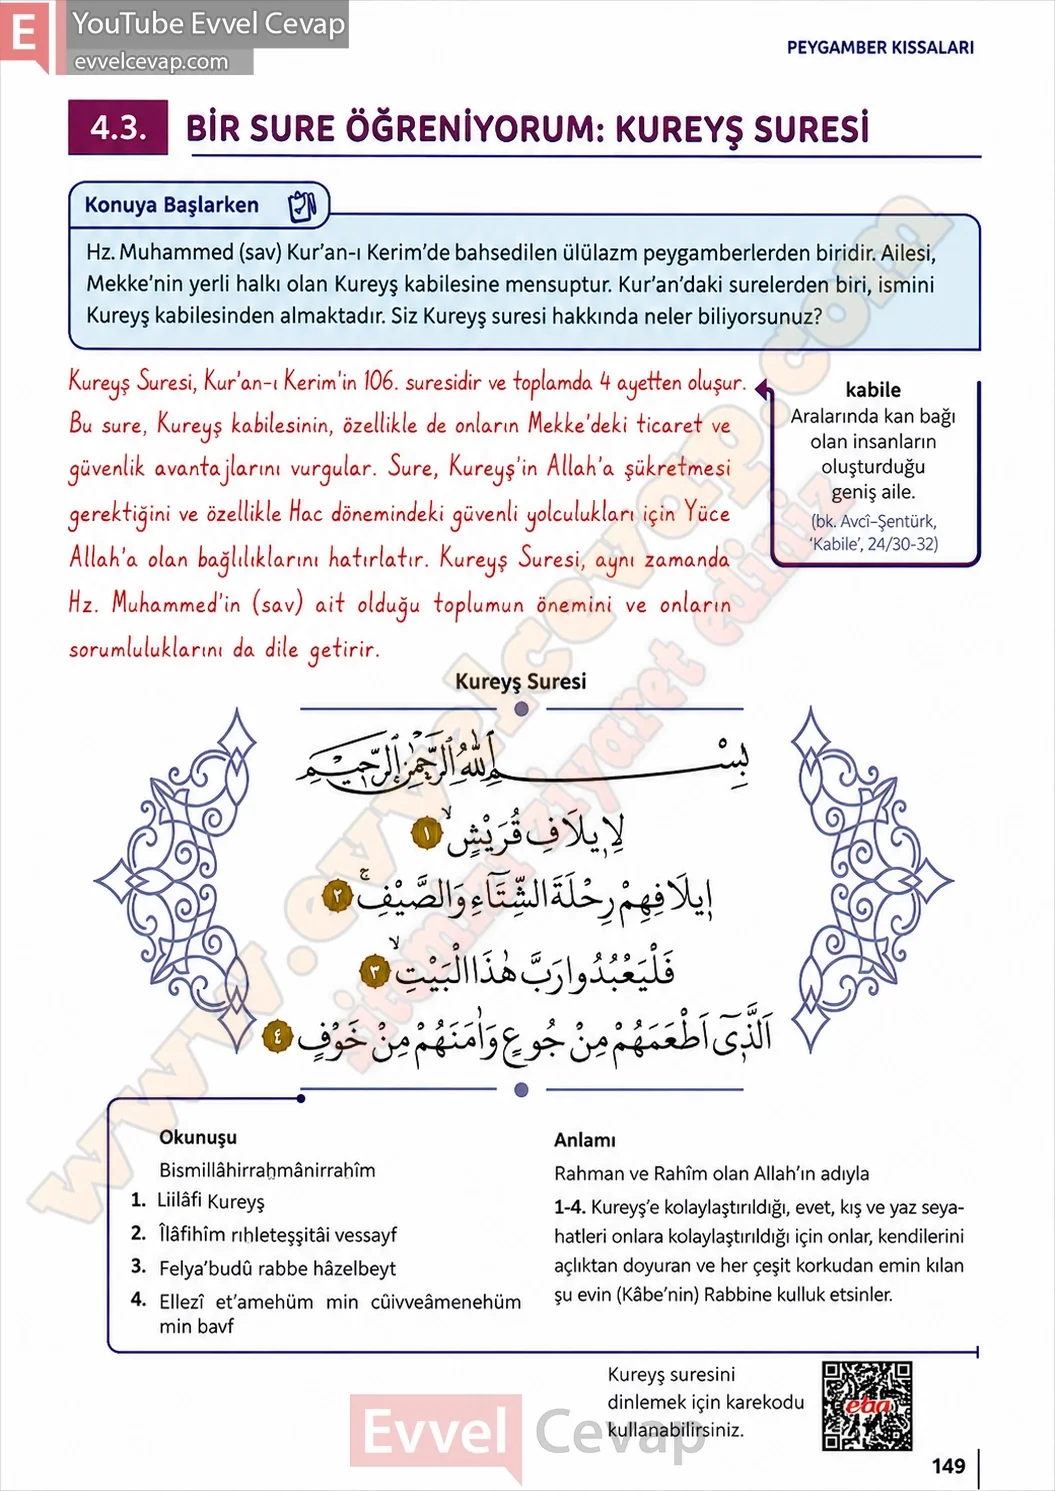 E
YouTube Evvel Cevap
evvelcevap.com
PEYGAMBER KISSALARI
4.3. BİR SURE ÖĞRENİYORUM: KUREYŞ SURESİ
Konuya Başlarken
Hz. Muhammed (sav) Kur'an-ı Kerim'de bahsedilen ülülazm peygamberlerden biridir. Ailesi,
Mekke'nin yerli halkı olan Kureyş kabilesine mensuptur. Kur'an'daki surelerden biri, ismini
Kureyş kabilesinden almaktadır. Siz Kureyş suresi hakkında neler biliyorsunuz?
Kureyş Suresi, Kur'an-ı Kerim'in 106. suresidir ve toplamda 4 ayetten oluşur.
Bu sure, Kureyş kabilesinin, özellikle de onların Mekke'deki ticaret ve
güvenlik avantajlarını vurgular. Sure, Kureyş'in Allah'a şükretmesi
gerektiğini ve özellikle Hac dönemindeki güvenli yolculukları için Yüce
Allah'a olan bağlılıklarını hatırlatır. Kureyş Suresi, aynı zamanda
Hz. Muhammed'in (sav) ait olduğu toplumun önemini ve onların
sorumluluklarını da dile getirir.
kabile
Aralarında kan bağı
olan insanların
oluşturduğu
geniş aile.
(bk. Avcî-Şentürk,
'Kabile', 24/30-32)
www.evvelcevap.com
sitemizi ziyaret ediniz
Kureyş Suresi
بِسْمِ اللّٰهِ الرَّحْمٰنِ الرَّحِيمِ
لِا۪يلَافِ قُرَيْشٍۙ ١
ا۪يلَافِهِمْ رِحْلَةَ الشِّتَٓاءِ وَالصَّيْفِۚ ٢
فَلْيَعْبُدُوا رَبَّ هٰذَا الْبَيْتِۙ ٣
اَلَّذ۪ٓي اَطْعَمَهُمْ مِنْ جُوعٍ وَاٰمَنَهُمْ مِنْ خَوْفٍ ٤
Okunuşu
Bismillâhirraḥmânirraḥîm
1. Liilâfi Kureyş
2. Îlâfihîm rıhleteşşitâi vessayf
3. Felya'budû rabbe hâzelbeyt
4. Ellezî et'amehüm min cûivveâmenehüm
min bavf
Anlamı
Rahman ve Rahîm olan Allah'ın adıyla
1-4. Kureyş'e kolaylaştırıldığı, evet, kış ve yaz seya-
hatleri onlara kolaylaştırıldığı için onlar, kendilerini
açlıktan doyuran ve her çeşit korkudan emin kılan
şu evin (Kâbe'nin) Rabbine kulluk etsinler.
Kureyş suresini
dinlemek için karekodu
kullanabilirsiniz.
eba
Evvel Cevap
149